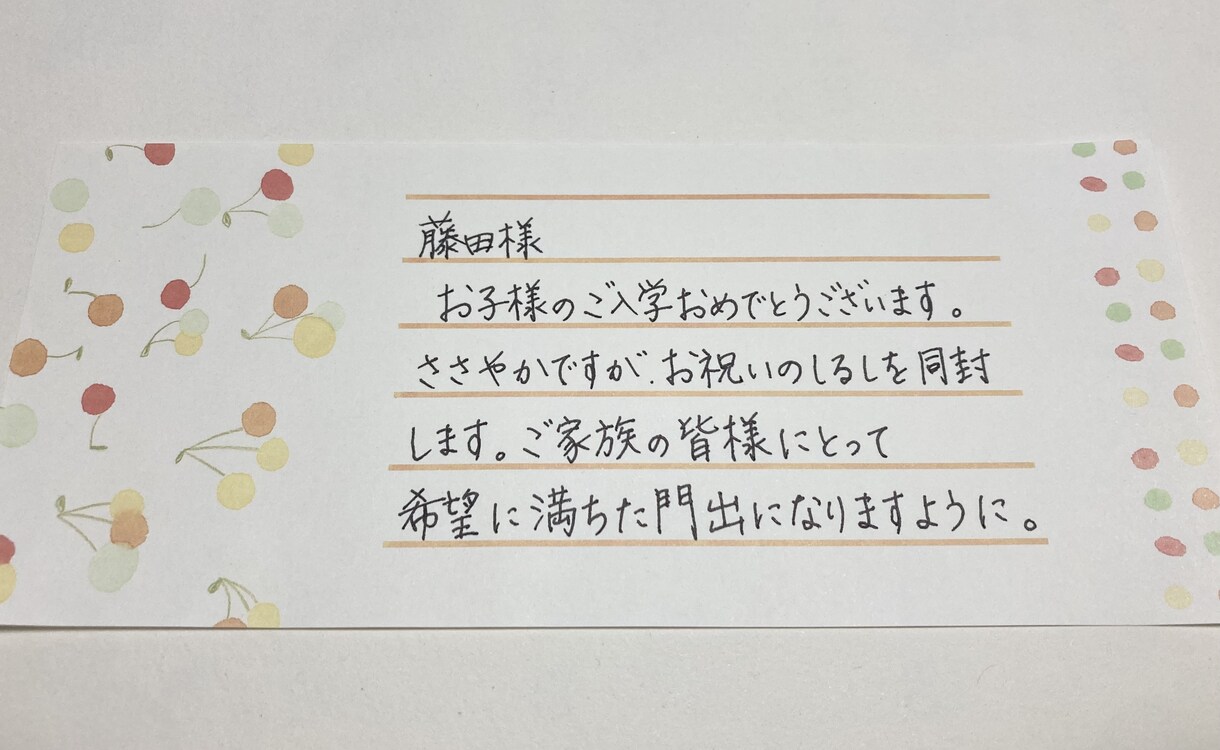 藤田様
お子様のご入学おめでとうございます。
ささやかですが、お祝いのしるしを同封
します。ご家族の皆様にとって
希望に満ちた門出になりますように。